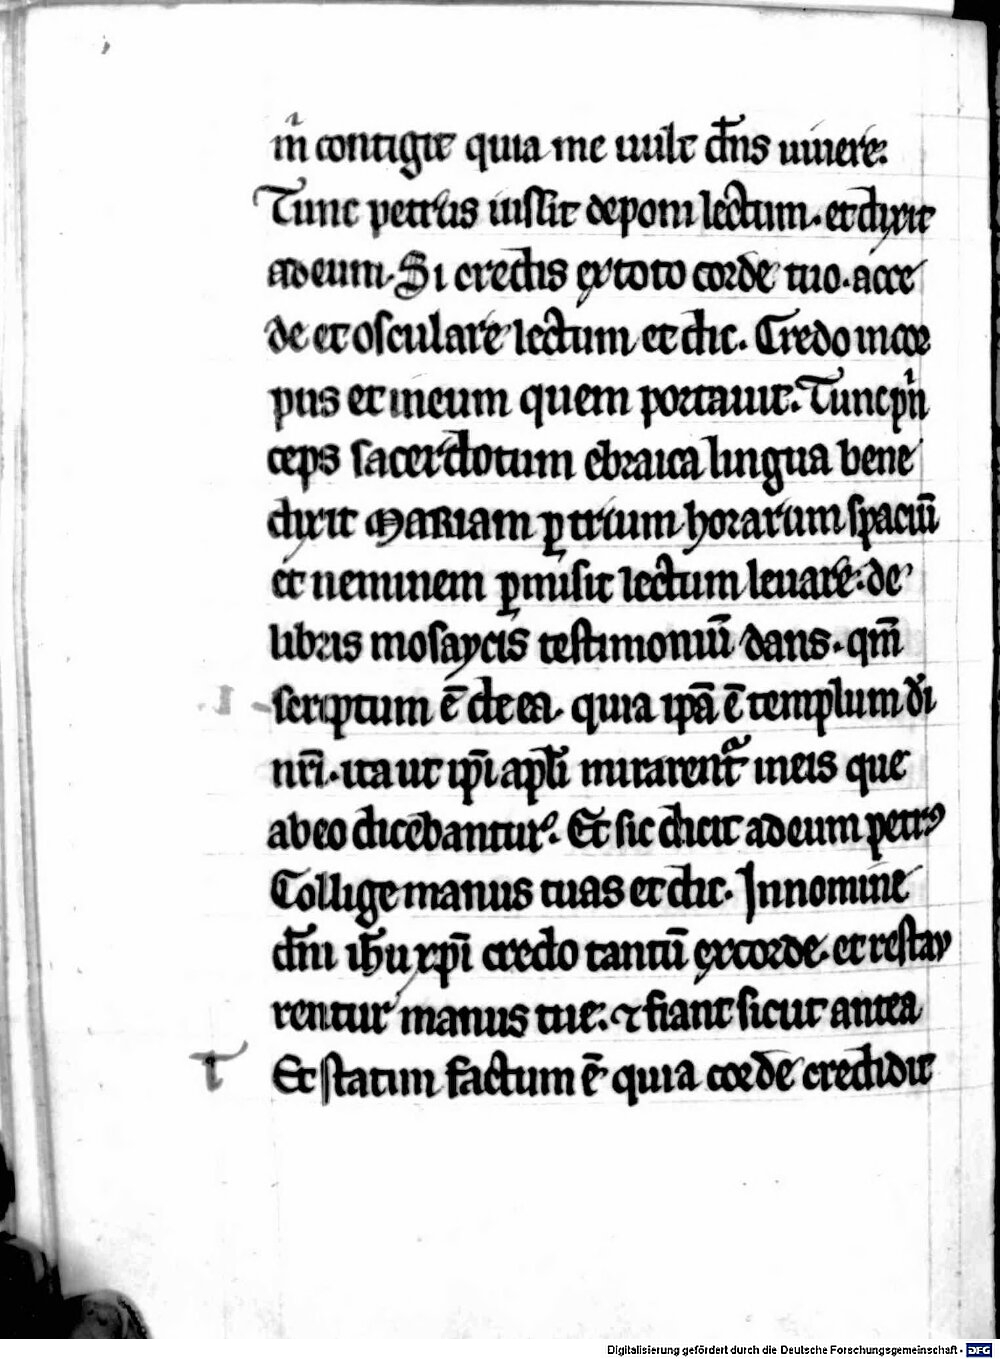 m̄ contigit quia me uult dn̄s uiuere.
Tunc petrus iussit deponi lectum. et dixit
ad eum. Si credis ex toto corde tuo. acce
de et osculare lectum et dic. Credo in cor
pus et in eum quem portauit. Tunc pn
ceps sacerdotum ebraica lingua bene
dixit MARIAM ꝑ trium horarum spaciū
et neminem ꝑmisit lectum leuare. de
libris mosaycis testimoniū dans. qm̄
scriptum ē de ea. quia ip̄a ē templum di
nr̄i. ita ut ip̄i apl̄i mirarent᷑ in eis que
ab eo dicebantur. Et sic dicit ad eum petrꝰ
Collige manus tuas et dic. In nomine
dn̄i ih̄u xp̄i credo tantū ex corde. et restau
rentur manus tue. ⁊ fiant sicut antea
Et statim factum ē quia corde credidit
t
Digitalisierung gefördert durch die Deutsche Forschungsgemeinschaft - DFG